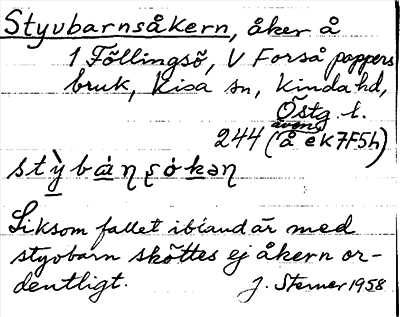 Styvbarnsåkern, åker å
1 Föllingsö, V Forså pappers
bruk, Kisa sn, Kinda hd,
Östg. l.
även
244 (å ek 7F5h)
Liksom fallet ibland är med
styvbarn sköttes ej åkern or-
dentligt. J. Sterner 1958